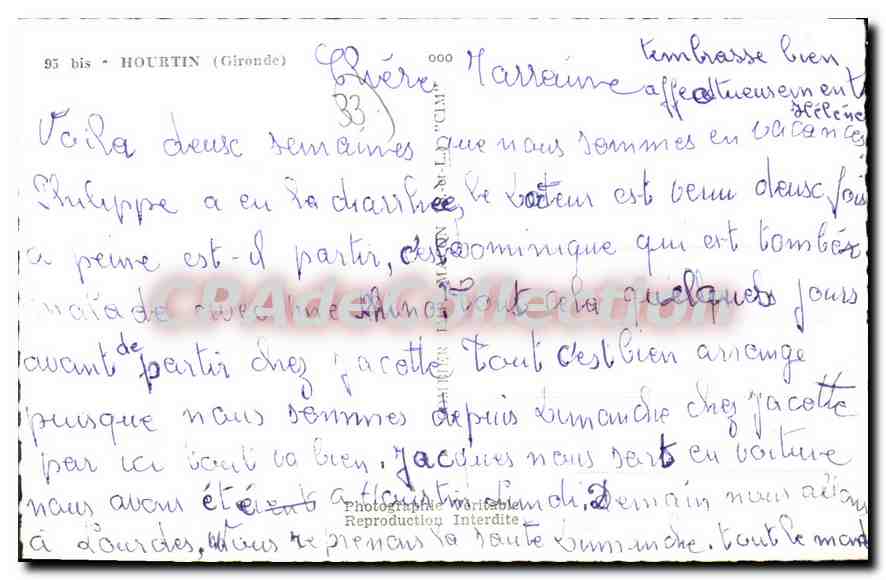 95 bis - HOURTIN (Gironde)
ooo
33
Chère Marraine
Voila deux semaines que nous sommes en vacances
Philippe a eu la diarrhée, le docteur est venu deux fois
a peine est-il partir, c'est Dominique qui est tombée
malade avec une Rhino. Tout cela quelques jours
avant de partir chez Jacotte Tout c'est bien arrangé
puisque nous sommes depuis Dimanche chez Jacotte
par ici tout va bien. Jacques nous sort en voiture
nous avons été a Lundi. Demain nous allons
à Lourdes, Nous reprenons la route Dimanche. tout le monde
t'embrasse bien
affectueusement
Hélène
"CIM"
Photographie Véritable
Reproduction Interdite
CPAdeCollection